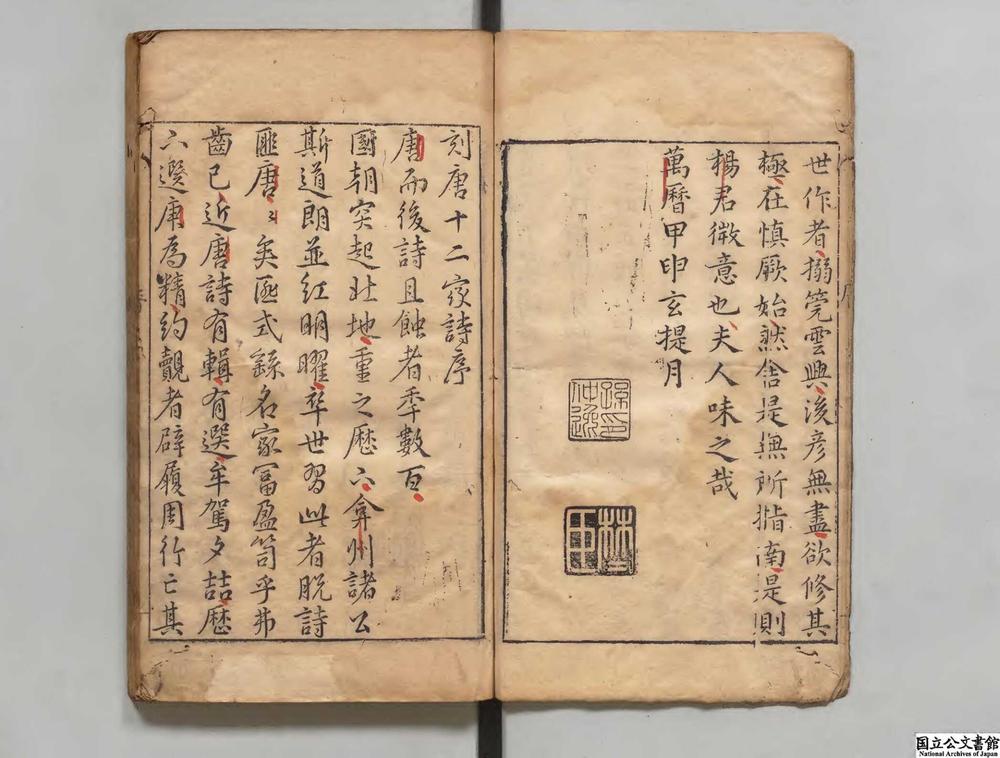 世作者搦筦雲興後彥無盡欲修其
極在慎厥始然舍是無所指南是則
楊君微意也夫人味之哉
萬曆甲申玄提月
孫印
仲逸
刻唐十二家詩序
唐而後詩且蝕者季數百
國朝突起壯地重之歷六弇州諸公
斯道朗並紅明曜卒世習此者脫詩
匪唐〻矣區式繇名家富盈笥乎弗
齒已近唐詩有輯有選牟駕夕喆歷
六選庚為精約覿者辟履周行亡其
国立公文書館
National Archives of Japan